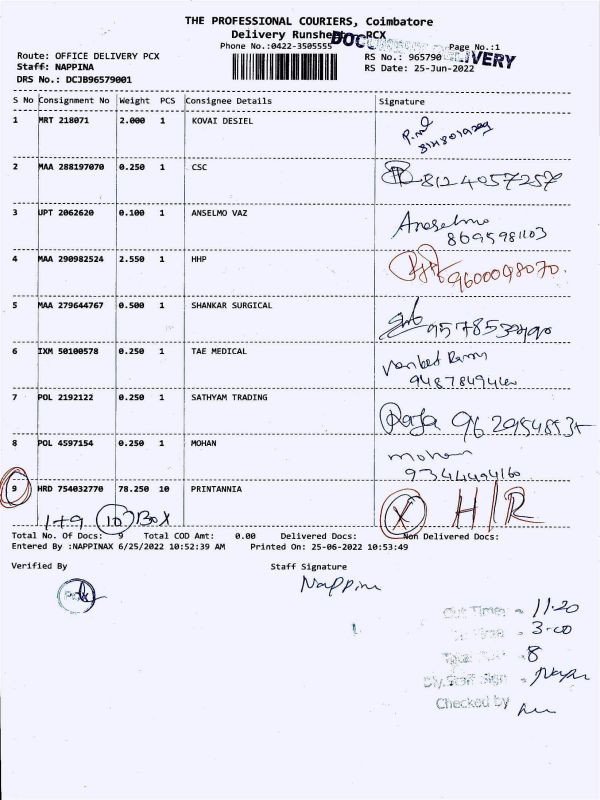 THE PROFESSIONAL COURIERS, Coimbatore
Delivery Runsheet RCX
Phone No.:0422-3505555
Page No.:1
Route: OFFICE DELIVERY PCX
RS No.: 965790
DELIVERY
Staff: NAPPINA
RS Date: 25-Jun-2022
DRS No.: DCJB96579001
S No Consignment No Weight PCS Consignee Details Signature
1 MRT 218071 2.000 1 KOVAI DESIEL
2 MAA 288197070 0.250 1 CSC 8124057257
3 UPT 2062620 0.100 1 ANSELMO VAZ Anselmo
8695981103
4 MAA 290982524 2.550 1 HHP 9600098070.
5 MAA 279644767 0.500 1 SHANKAR SURGICAL
6 IXM 50100578 0.250 1 TAE MEDICAL
7 POL 2192122 0.250 1 SATHYAM TRADING Raja
8 POL 4597154 0.250 1 MOHAN mohan
9344494160
9 HRD 754032770 78.250 10 PRINTANNIA X H/R
1+9 10 Box
Total No. Of Docs: 9 Total COD Amt: 0.00 Delivered Docs: Non Delivered Docs:
Entered By :NAPPINAX 6/25/2022 10:52:39 AM Printed On: 25-06-2022 10:53:49
Verified By Staff Signature
Nappina
Out Time = 11-20
In Time = 3-00
Total = 8
Dly.Staff Sign
Checked by